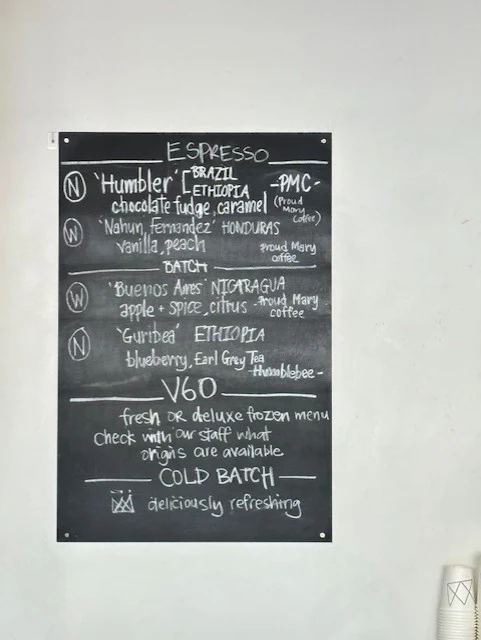 ESPRESSO
N 'Humbler' [ BRAZIL ETHIOPIA -PMC-
chocolate fudge, caramel (Proud Mary Coffee)
W 'Nahun, fernandez' HONDURAS
vanilla, peach proud Mary coffee
BATCH
W 'Buenos Aires' NICARAGUA
apple + spice, citrus -Proud Mary coffee
N 'Guribea' ETHIOPIA
blueberry, Earl Grey Tea
-Humblebee-
V60
fresh OR deluxe frozen menu
check with our staff what
origins are available
COLD BATCH
deliciously refreshing